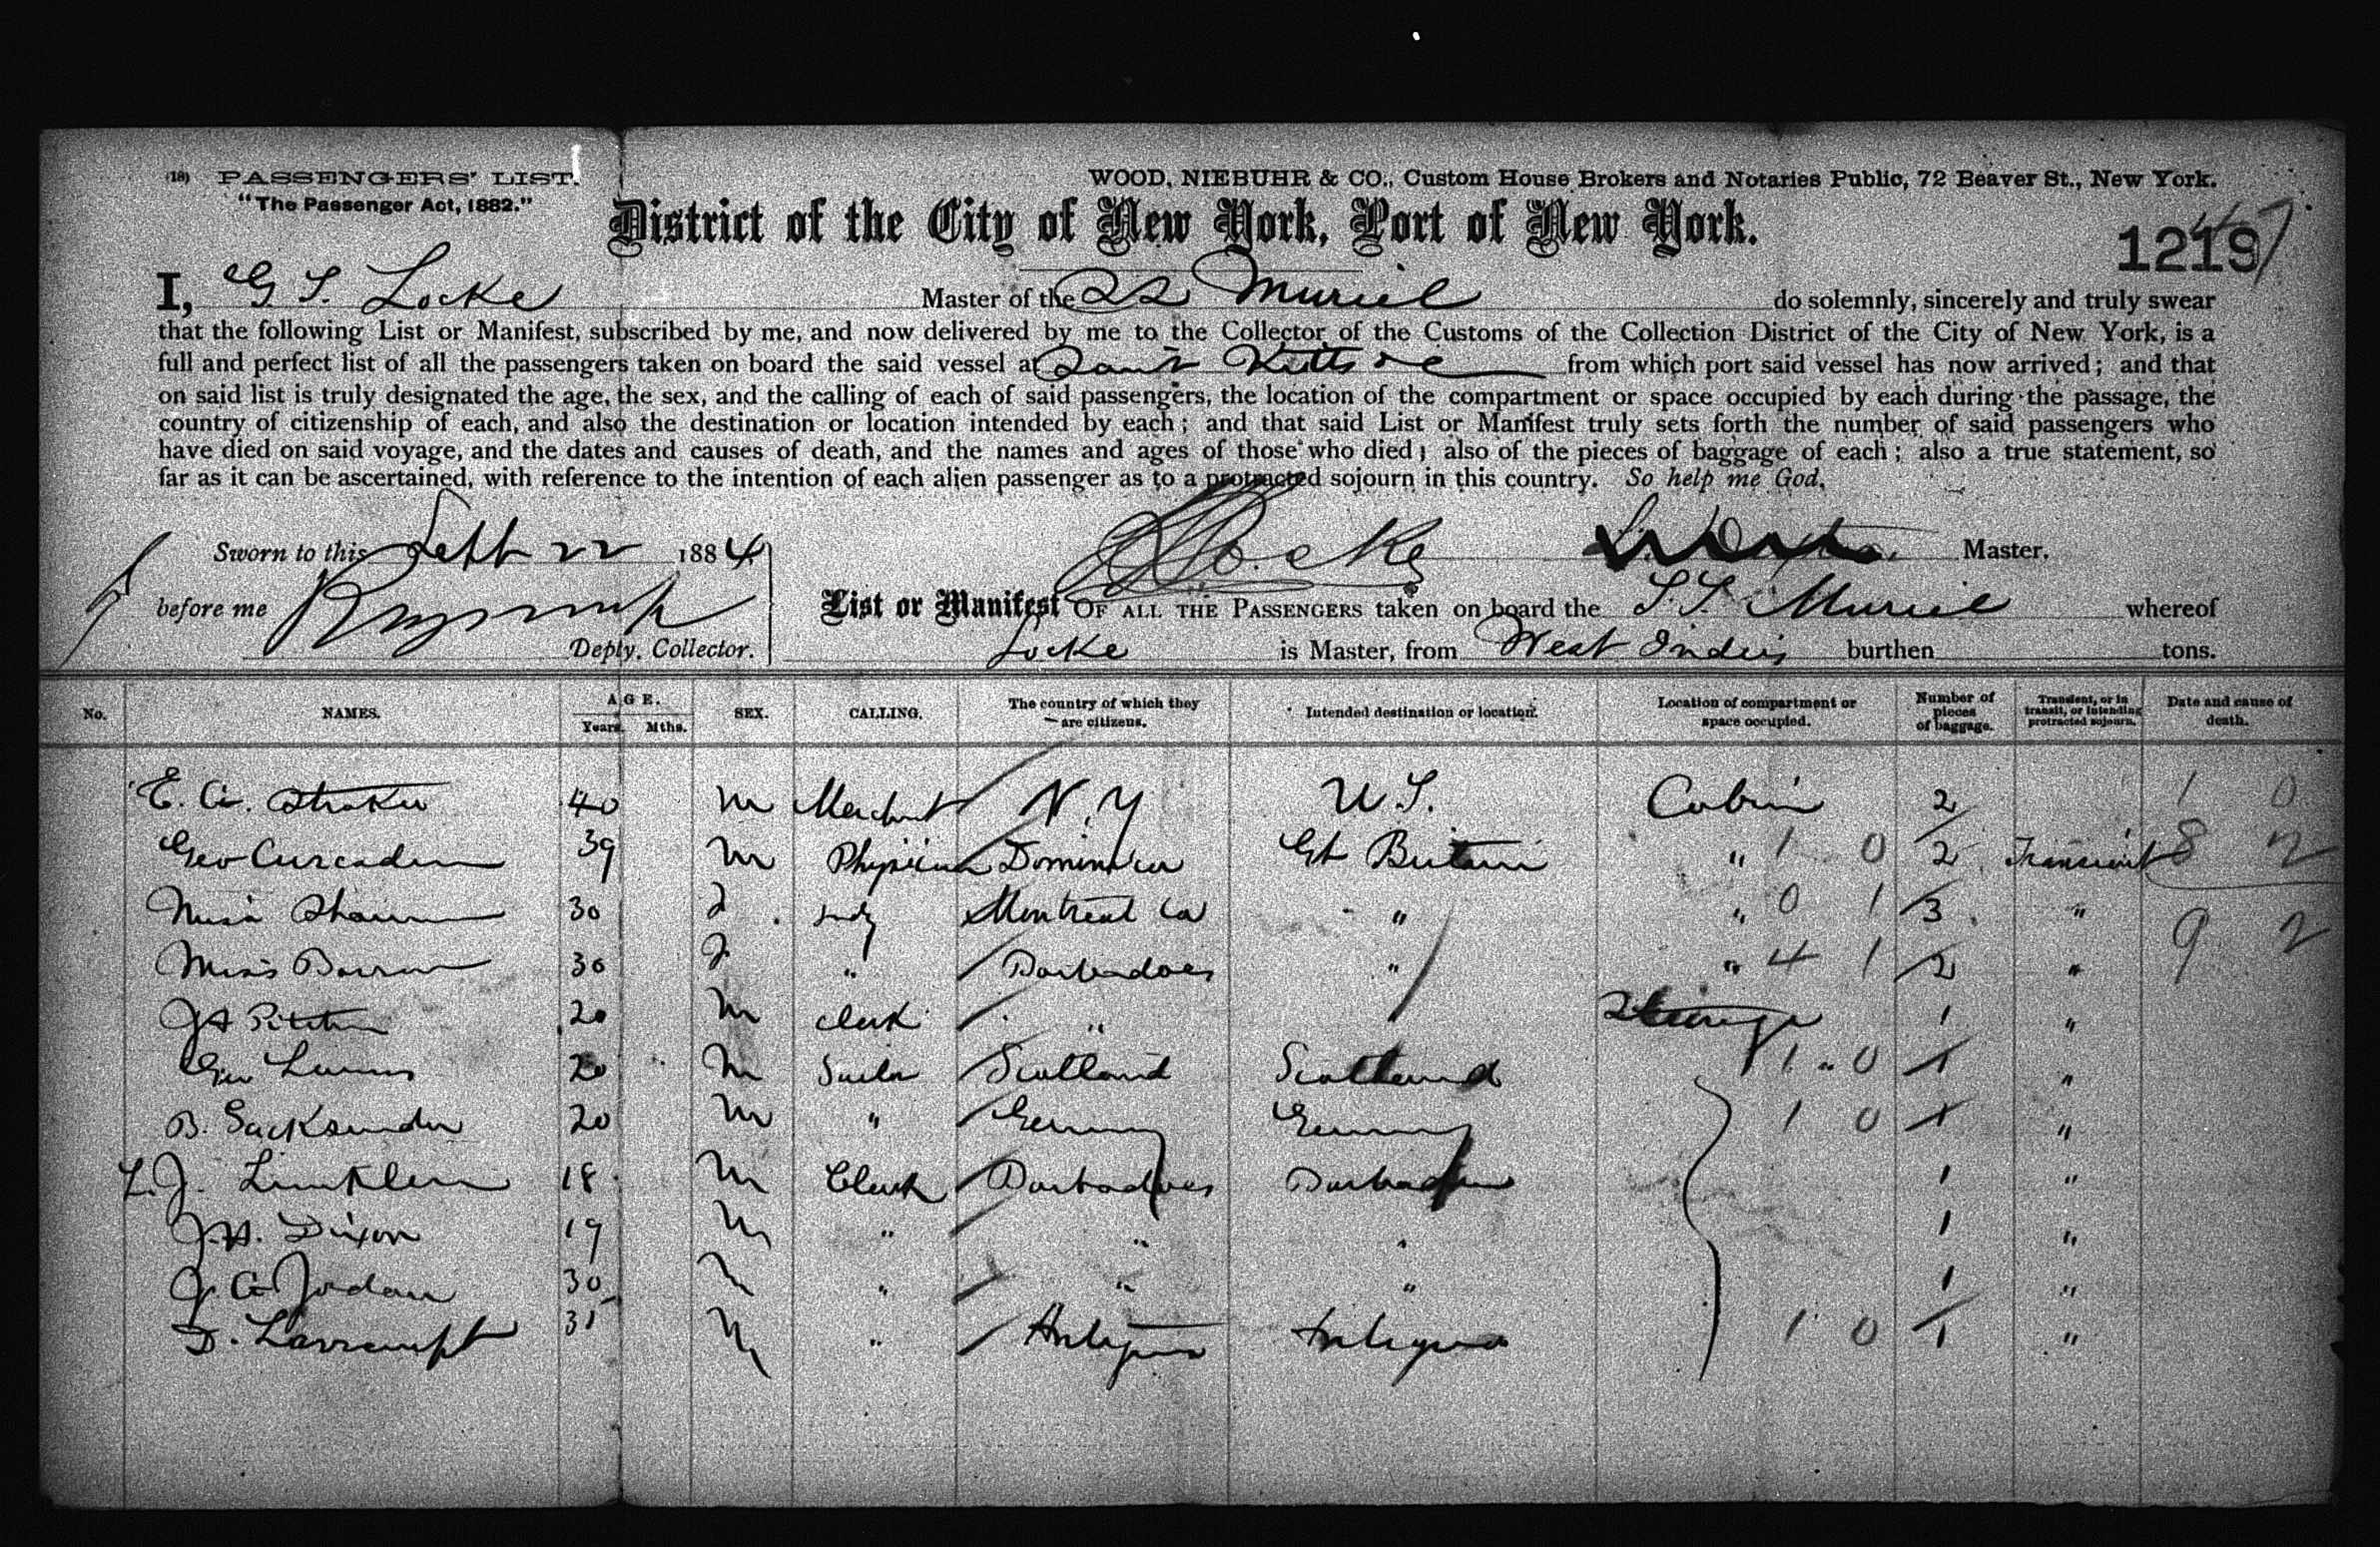 (18) PASSENGERS' LIST. WOOD, NIEBUHR & CO., Custom House Brokers and Notaries Public, 72 Beaver St., New York.
"The Passenger Act, 1882."
District of the City of New York, Port of New York.
1219
I, G. S. Locke Master of the SS Muriel do solemnly, sincerely and truly swear
that the following List or Manifest, subscribed by me, and now delivered by me to the Collector of the Customs of the Collection District of the City of New York, is a
full and perfect list of all the passengers taken on board the said vessel at Saint Kitts from which port said vessel has now arrived; and that
on said list is truly designated the age, the sex, and the calling of each of said passengers, the location of the compartment or space occupied by each during the passage, the
country of citizenship of each, and also the destination or location intended by each; and that said List or Manifest truly sets forth the number of said passengers who
have died on said voyage, and the dates and causes of death, and the names and ages of those who died; also of the pieces of baggage of each; also a true statement, so
far as it can be ascertained, with reference to the intention of each alien passenger as to a protracted sojourn in this country. So help me God.
Sworn to this Sept 22 1884 Locke Master.
before me
Deply. Collector.
List or Manifest OF ALL THE PASSENGERS taken on board the S.S. Muriel whereof
Locke is Master, from West Indies burthen tons.
No. NAMES. AGE. Years. Mths. SEX. CALLING. The country of which they are citizens. Intended destination or location. Location of compartment or space occupied. Number of pieces of baggage. Transient, or in transit, or intending protracted sojourn. Date and cause of death.
E. A. Straker 40 M Merchant N.Y U.S. Cabin 2 1 0
Geo 39 M Physician Dominica Gt Britain " 1 0 2 Transient 8 2
Miss 30 F Lady Montreal Ca " " 0 1 3 "
Miss 30 F " Barbadoes " " 4 1 2 " 9 2
20 M Clerk " Steerage 1 "
Geo 20 M Sailor Scotland Scotland 1 0 1 "
B. 20 M " Germany Germany 1 0 1 "
18 M Clerk Barbadoes Barbadoes 1 "
J. H. Dixon 19 M " " " 1 "
J. A Jordan 30 M " " " 1 "
D. 31 M " Antigua Antigua 1 0 1 "